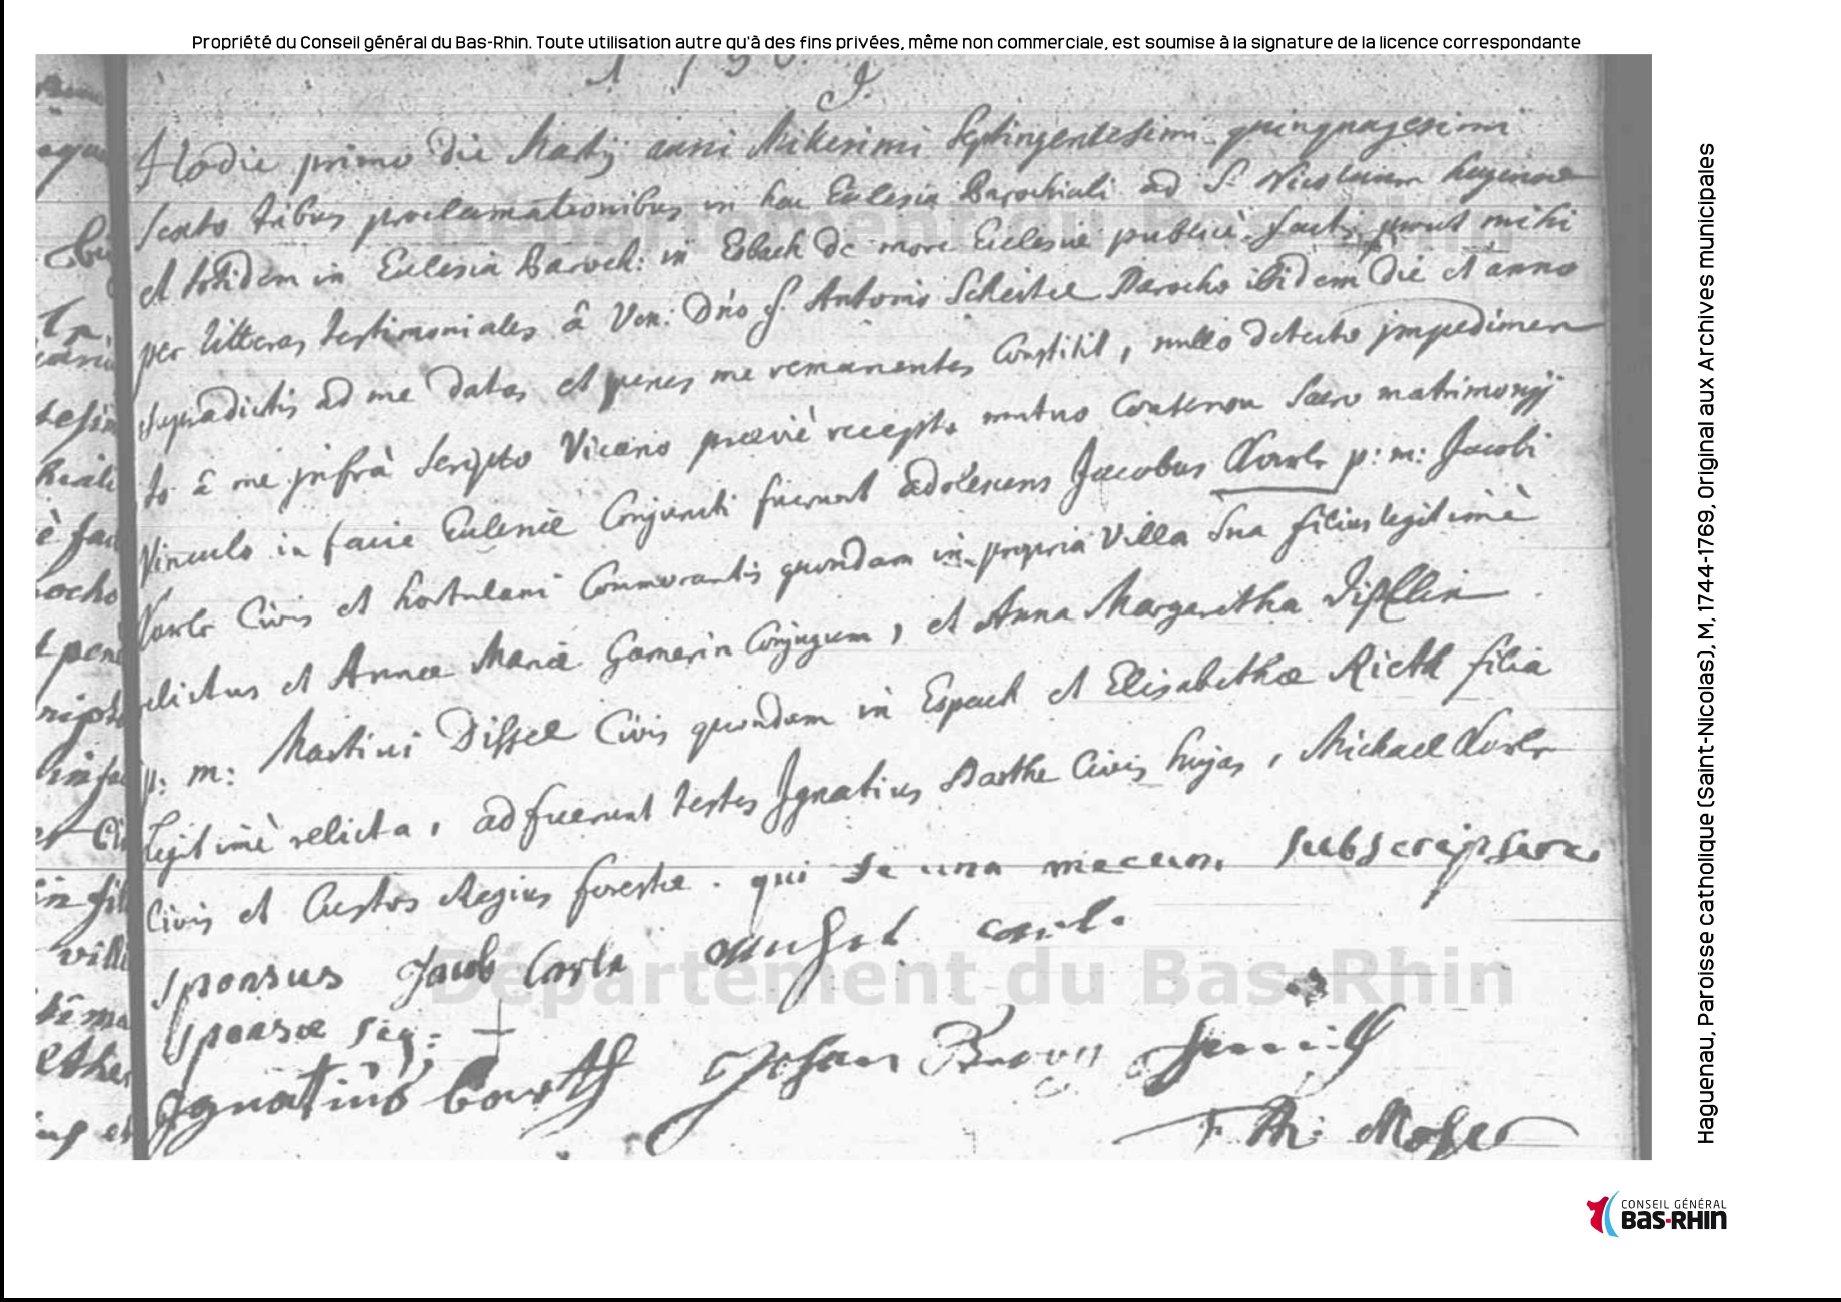 Propriété du Conseil général du Bas-Rhin. Toute utilisation autre qu'à des fins privées, même non commerciale, est soumise à la signature de la licence correspondante
Hodie primo die Martij anni Millesimi Septingentesimi quinquagesimi
Sexto tribus proclamationibus in hac Eclesia Parochiali ad S. Nicolaum hagenoae
et totidem in Eclesia Paroch: in Esbach de more Eclesiae publicè factis prout mihi
per litteras testimoniales â Ven: Dno f. Antonio Parocho ibidem die et anno
supradictis ad me datas et penes me remanentes Constitit, nullo detecto jmpedimen
to â me jnfrà Scripto Vicario praeviè recepto mutuo Consensu Sacro matrimonij
Vinculo in facie Eclesiae Conjuncti fuerunt adolescens Jacobus Karlr p: m: Jacobi
Karlr Civis et hortulani Commorantis quondam in propria Villa Sua filius legitimè
relictus et Annae Mariae Gamerin Conjugum, et Anna Margaritha Disslin
p: m: Martini Dissel Civis quondam in Espach et Elisabethae Rieth filia
legitimè relicta, adfuerunt testes Jgnatius Barthe Civis hujas, Michael Karlr
Civis et Custos Regius forestae. qui se una mecum Subscripserunt
Sponsus Jacob Carle
Sponsae sig: +
Ignatius barth Johan
F. Moser
Département du Bas-Rhin
Département du Bas-Rhin
Haguenau, Paroisse catholique (Saint-Nicolas), M, 1744-1769, Original aux Archives municipales
CONSEIL GÉNÉRAL
BAS-RHIN